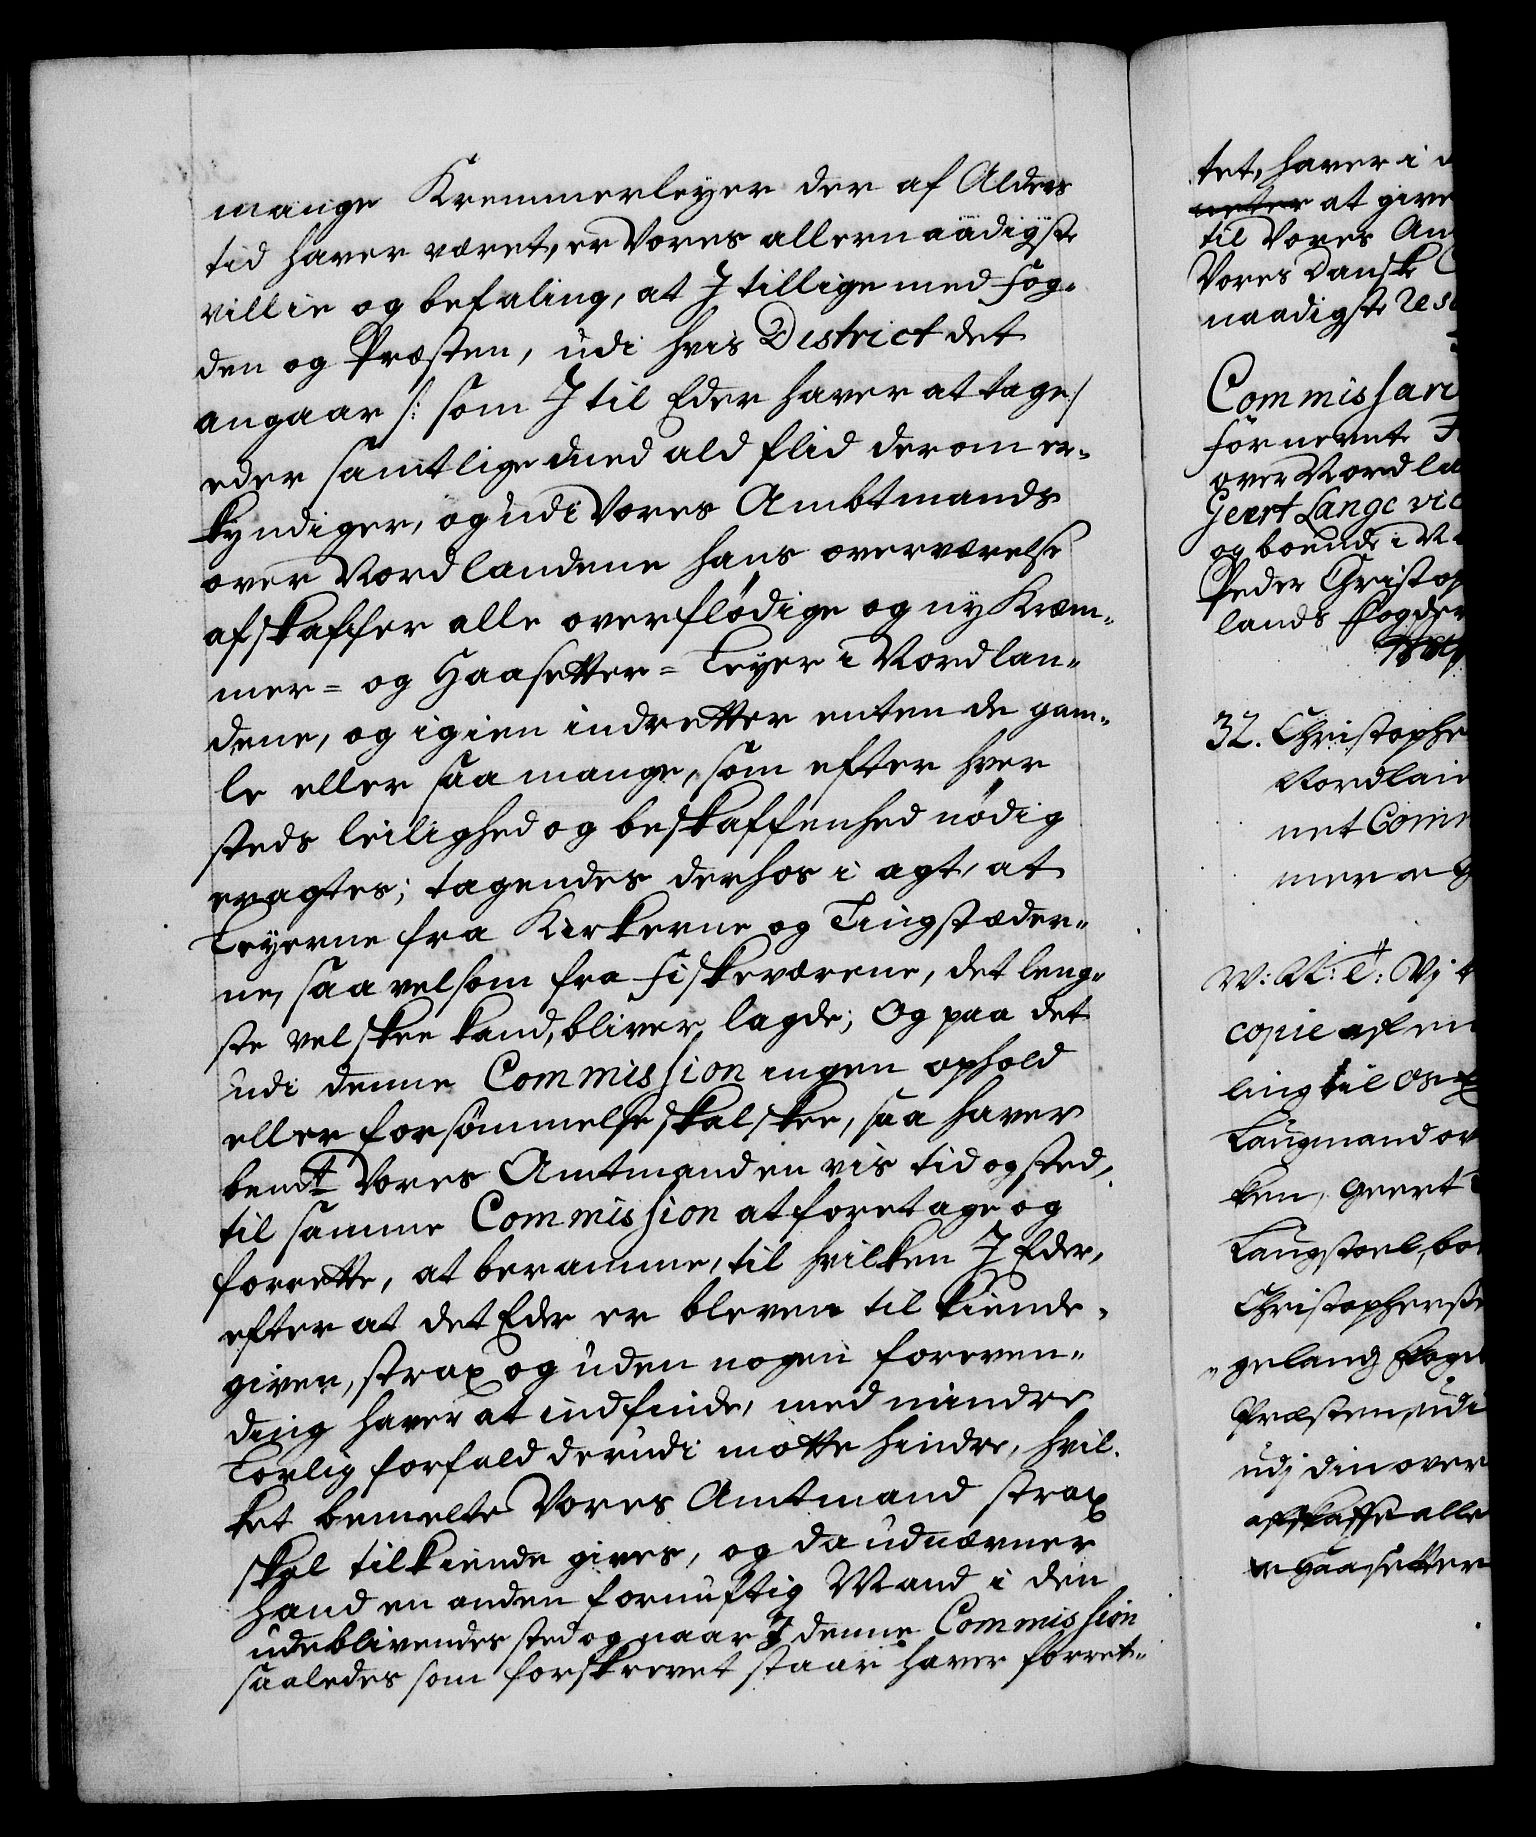 mange Kremmerleyer der af Alders
tid haver været, er Vores allernaadigste
villie og befaling, at I tillige med Fog¬
den og Præsten, udi hvis District det
angaar /: som I til Eder haver at tage /
eder samtlige med ald flid derom er¬
kyndiger, og udi Vores Ambtmands
over Nordlandene hans overværelse
afskaffer alle overflødige og ny Kræm¬
mer= og Haasetter= Leyer i Nordlan¬
dene, og igien indretter enten de gam¬
le eller saa mange, som efter hver
steds leilighed og beskaffenhed nødig
eragtes; tagendes derhos i agt, at
Leyerne fra Kirkerne og Tingstæder¬
ne, saa vel som fra Fiskeværene, det leng¬
ste vel skee kand, bliver lagde; Og paa det
udi denne Commission ingen ophold
eller forsømmelse skal skee, saa haver
bemt Vores Amtmand en vis tid og sted,
til samme Commission at foretage og
forrette, at beramme, til hvilken I Eder,
efter at det Eder er bleven til kiende¬
given, strax og uden nogen foreven¬
ding haver at indfinde, med mindre
Lovlig forfald derudi motte hindre, hvil¬
ket bemelte Vores Amtmand strax
skal tilkiende gives, og da udnævner
hand en anden fornuftig Mand i den
udeblivendes sted og naar I denne Commission
saaledes som forskrevet staar haver forret¬
tet, haver i
at give
til Vores Am
Vores Danske C
naadigste Res
Commissari
Fornevnte
over Nordla
Geert Lange vic
og boende i N
Peder Christop
lands Fogder
32. Christophe
Nordlan
net Comm
mer
W: A: T: Vj
copie af en
ling til Os
Laugmand ov
ken, Geert
Laugstoel, bo
Christophersen
geland Foged
Præsten, udi
udj din over
afskaffe alle
Haasetter